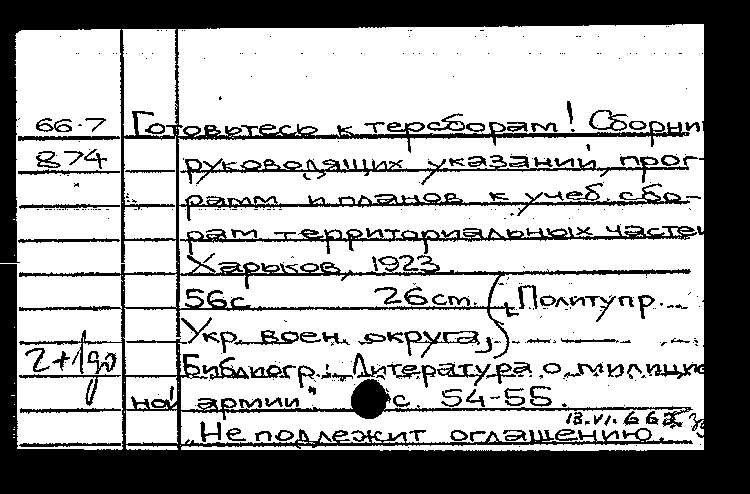 66-7 Готовьтесь к терсборам! Сборни
874 руководящих указаний, прог-
рамм и планов к учеб. сбо-
рам территориальных часте
Харьков, 1923.
56с 26 ст. (Политупр.
Укр. воен. округа,)
2+1до Библиогр.: "Литература о милицио
ной армии" с. 54-55.
13.VI.66г.
"Не подлежит оглашению.